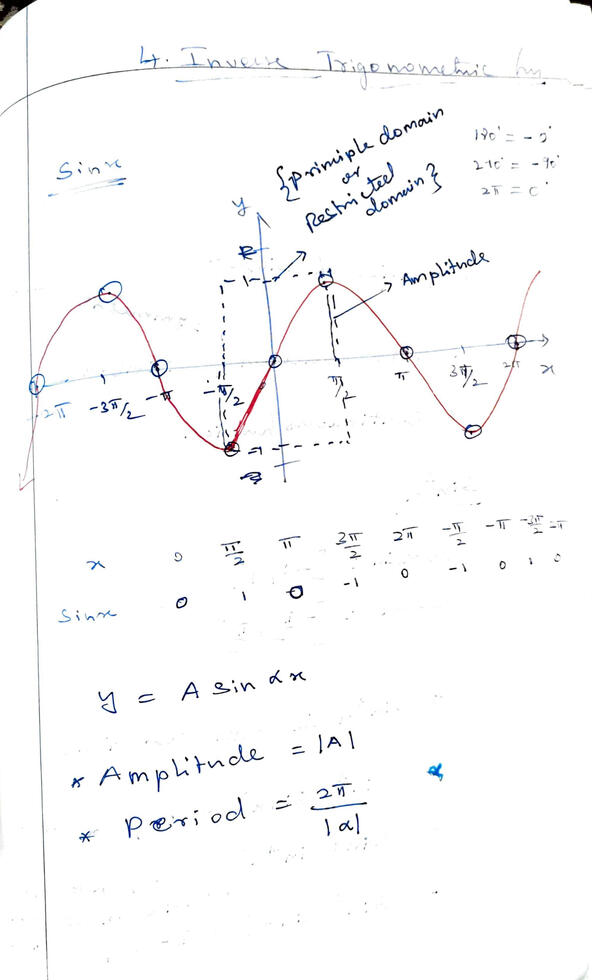 4. Inverse Trigonometric
Sinx
{principle domain
or
Restricted
domain}
180° = - 0°
270° = - 90°
2π = 0°
y
1
Amplitude
-2π -3π/2 -π -π/2 π/2 π 3π/2 2π x
-1
x 0 π/2 π 3π/2 2π -π/2 -π -3π/2 -π
Sinx 0 1 0 -1 0 -1 0 1 0
y = A sin αx
* Amplitude = |A|
* Period = 2π/|α|
α